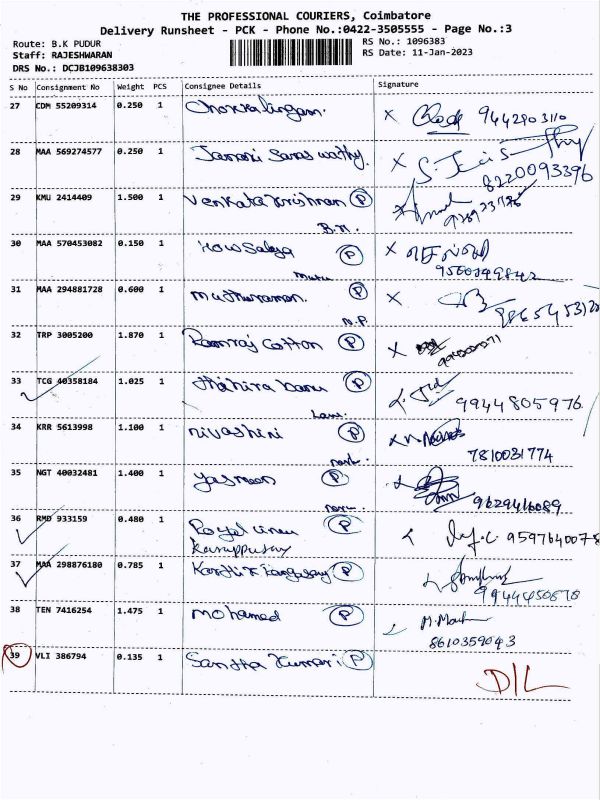 THE PROFESSIONAL COURIERS, Coimbatore
Delivery Runsheet - PCK - Phone No.:0422-3505555 - Page No.:3
Route: B.K PUDUR
RS No.: 1096383
Staff: RAJESHWARAN
RS Date: 11-Jan-2023
DRS No.: DCJB109638303
S No Consignment No Weight PCS Consignee Details Signature
27 CDM 55209314 0.250 1 Chokkalingam. X 9442803110
28 MAA 569274577 0.250 1 Janani Saraswathy. X 8220093396
29 KMU 2414409 1.500 1 Venkata Krishnan P
B.N.
30 MAA 570453082 0.150 1 P X
31 MAA 294881728 0.600 1 P X
N.P.
32 TRP 3005200 1.870 1 Ramraj Cotton P X
33 TCG 40358184 1.025 1 Thahira banu P 9944805976
34 KRR 5613998 1.100 1 nivashini P 7810031774
35 NGT 40032481 1.400 1 yasmeen P 9629416089
36 RMD 933159 0.480 1 Royal P 9597640078
Karuppusay
37 MAA 298876180 0.785 1 P 9944450878
38 TEN 7416254 1.475 1 mohamed P
8610359043
39 VLI 386794 0.135 1 Santha Kumari P
D/L